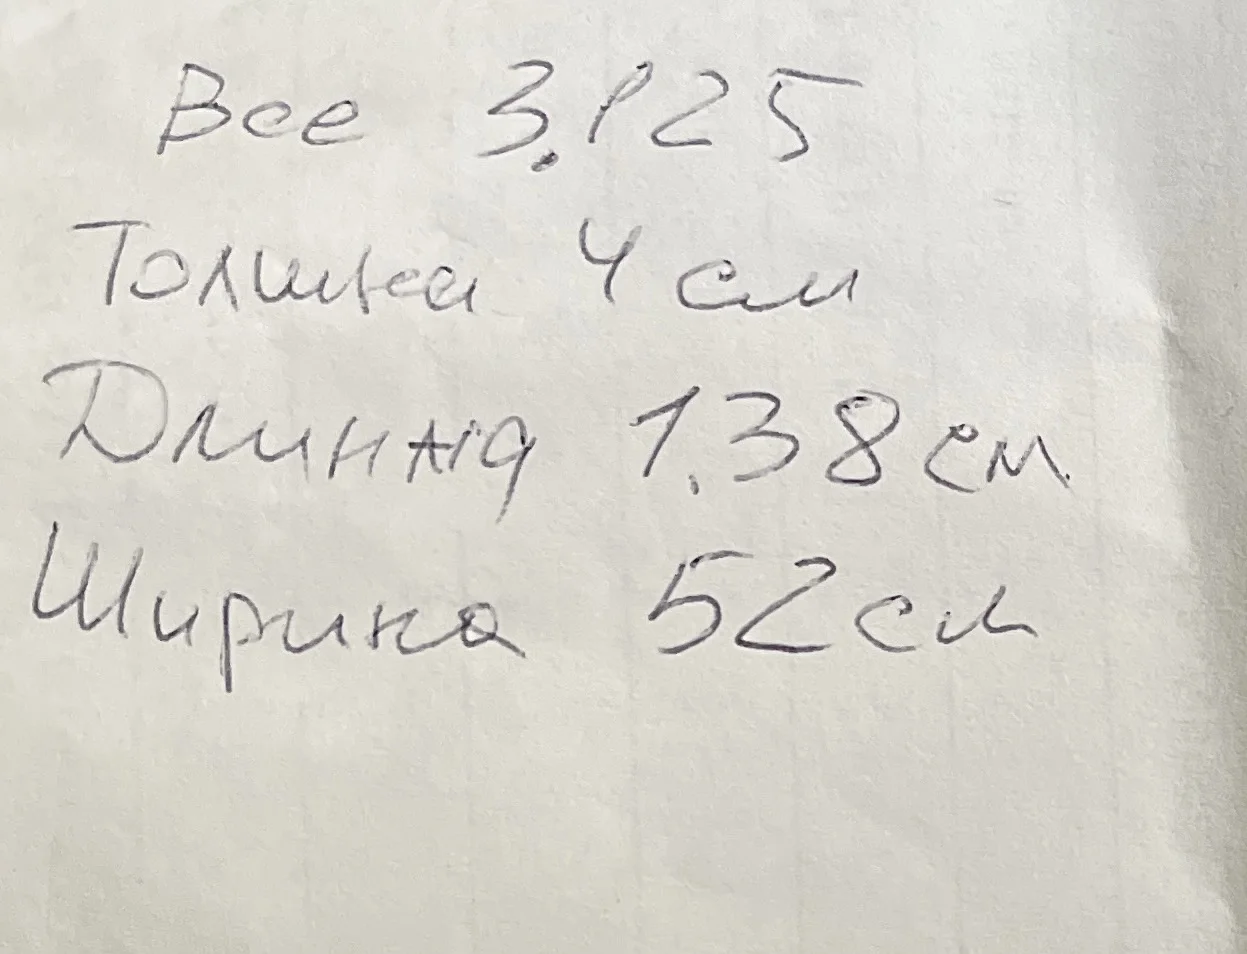 Все 3.125
Толщина 4 см
Длинна 1.38 см
Ширина 52 см